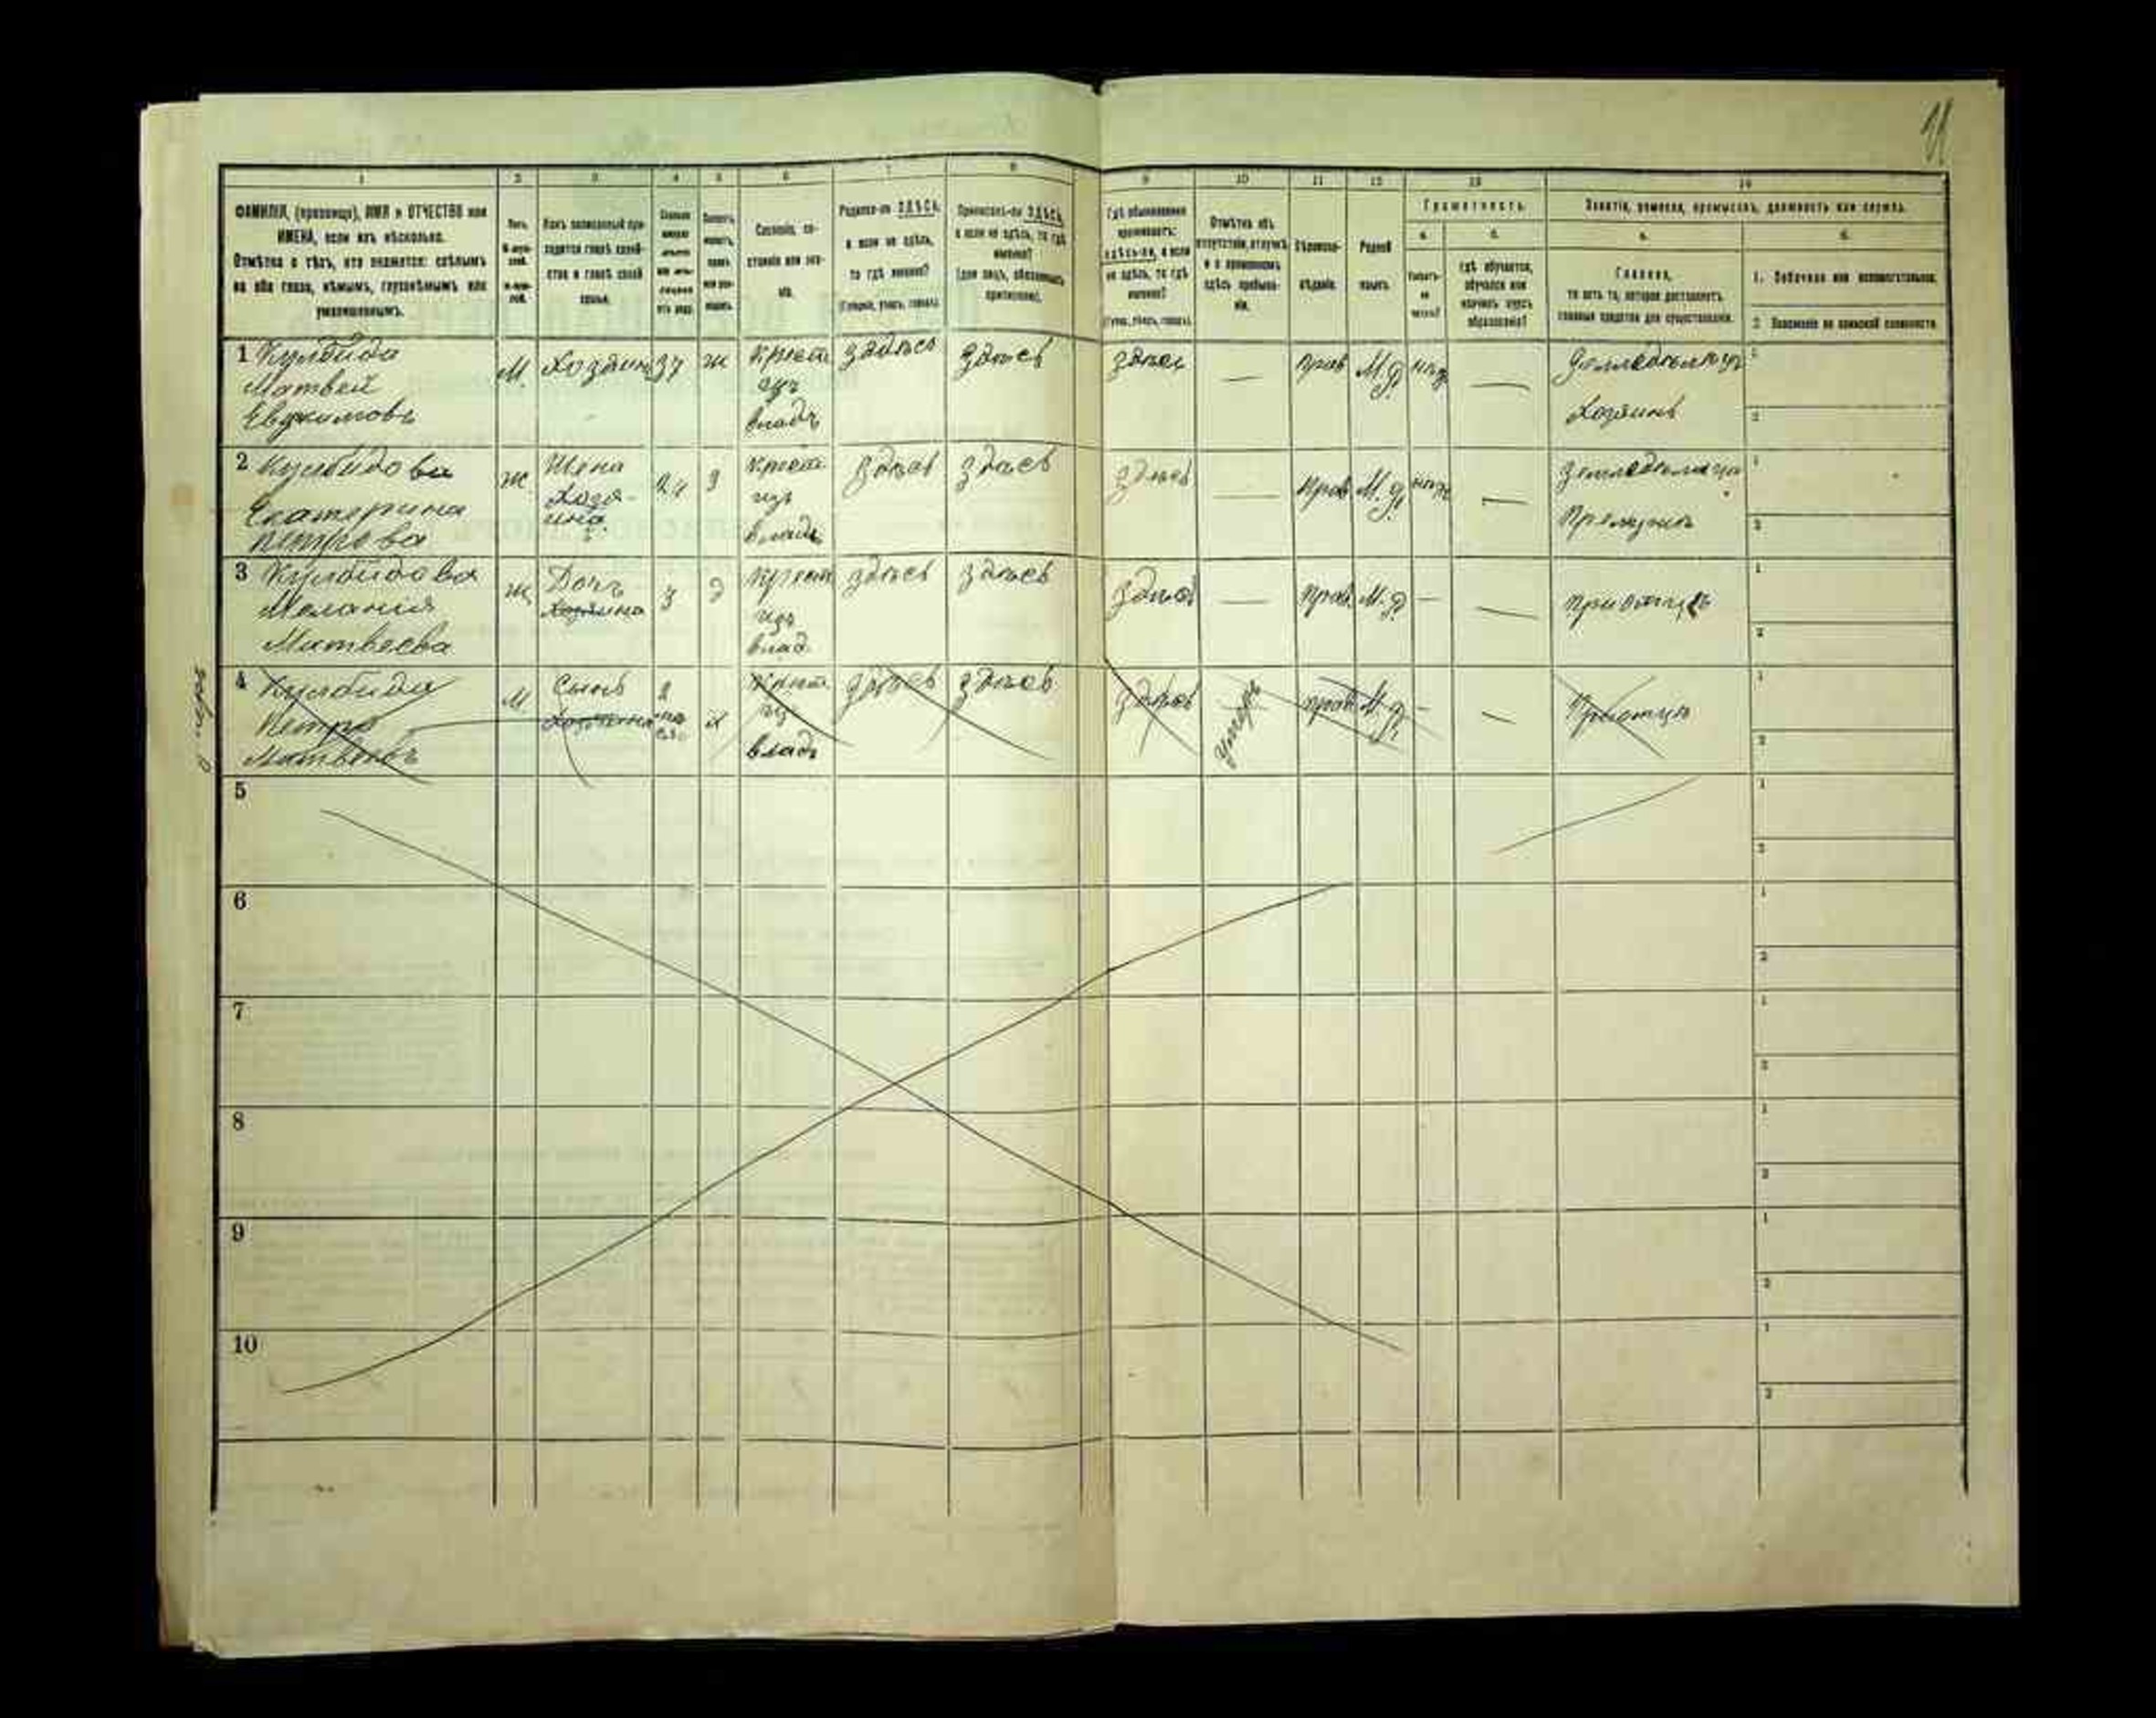 11
1 2 3 4 5 6 7 8 9 10 11 12 13 14
ФАМИЛІЯ, (прозвище), ИМЯ и ОТЧЕСТВО или
ИМЕНА, если ихъ нѣсколько.
Отмѣтка о тѣхъ, кто окажется: слѣпымъ
на оба глаза, нѣмымъ, глухонѣмымъ или
умалишеннымъ.
Полъ.
Какъ записанный при-
ходится главѣ хозяй-
ства и главѣ своей
семьи.
Сословіе, со-
стояніе или зва-
ніе.
Родился-ли ЗДѢСЬ,
а если не здѣсь,
то гдѣ именно?
(Губернія, уѣздъ, городъ).
Приписанъ-ли ЗДѢСЬ,
а если не здѣсь, то гдѣ
именно?
(для лицъ, обязанныхъ
припискою).
Гдѣ обыкновенно
проживаетъ:
здѣсь-ли, а если
не здѣсь, то гдѣ
именно?
(Губ., уѣздъ, городъ).
Отмѣтка объ
отсутствіи, отлучкѣ
и о временномъ
здѣсь пребыва-
ніи.
Вѣроиспо-
вѣданіе.
Родной
языкъ.
Грамотность.
а. б.
Умѣетъ-
ли
читать?
Гдѣ обучается,
обучался или
кончилъ курсъ
образованія?
Занятіе, ремесло, промыселъ, должность или служба.
а. б.
Главное,
то есть то, которое доставляетъ
главныя средства для существованія.
1. Побочное или вспомогательное.
2. Положеніе по воинской повинности.
1 Кулбида
Матвей
Евдокимовъ
М. Хозяин 37 ж
Крест
изъ
владъ
здѣсь здѣсь здѣсь — прав М.р нѣтъ —
Земледѣлецъ
Хозяинъ
1
2
2 Кулбидова
Екатерина
Петрова
ж
Жена
Хозя-
ина
24 з
Крест
изъ
владъ
здѣсь здѣсь здѣсь — прав М.р нѣтъ —
1
2
3 Кулбидова
Мелания
Матвеева
ж
Дочь
Хозяина
3 д
Крест
изъ
влад
здѣсь здѣсь здѣсь — прав М.р — —
При отцѣ
1
2
4 Кулбида
Петро
Матвеевъ
М
Сынъ
Хозяина
Крест
из
владъ
здѣсь здѣсь здѣсь умеръ прав М.р — —
При отцѣ
1
2
5
1
2
6
1
2
7
1
2
8
1
2
9
1
2
10
1
2